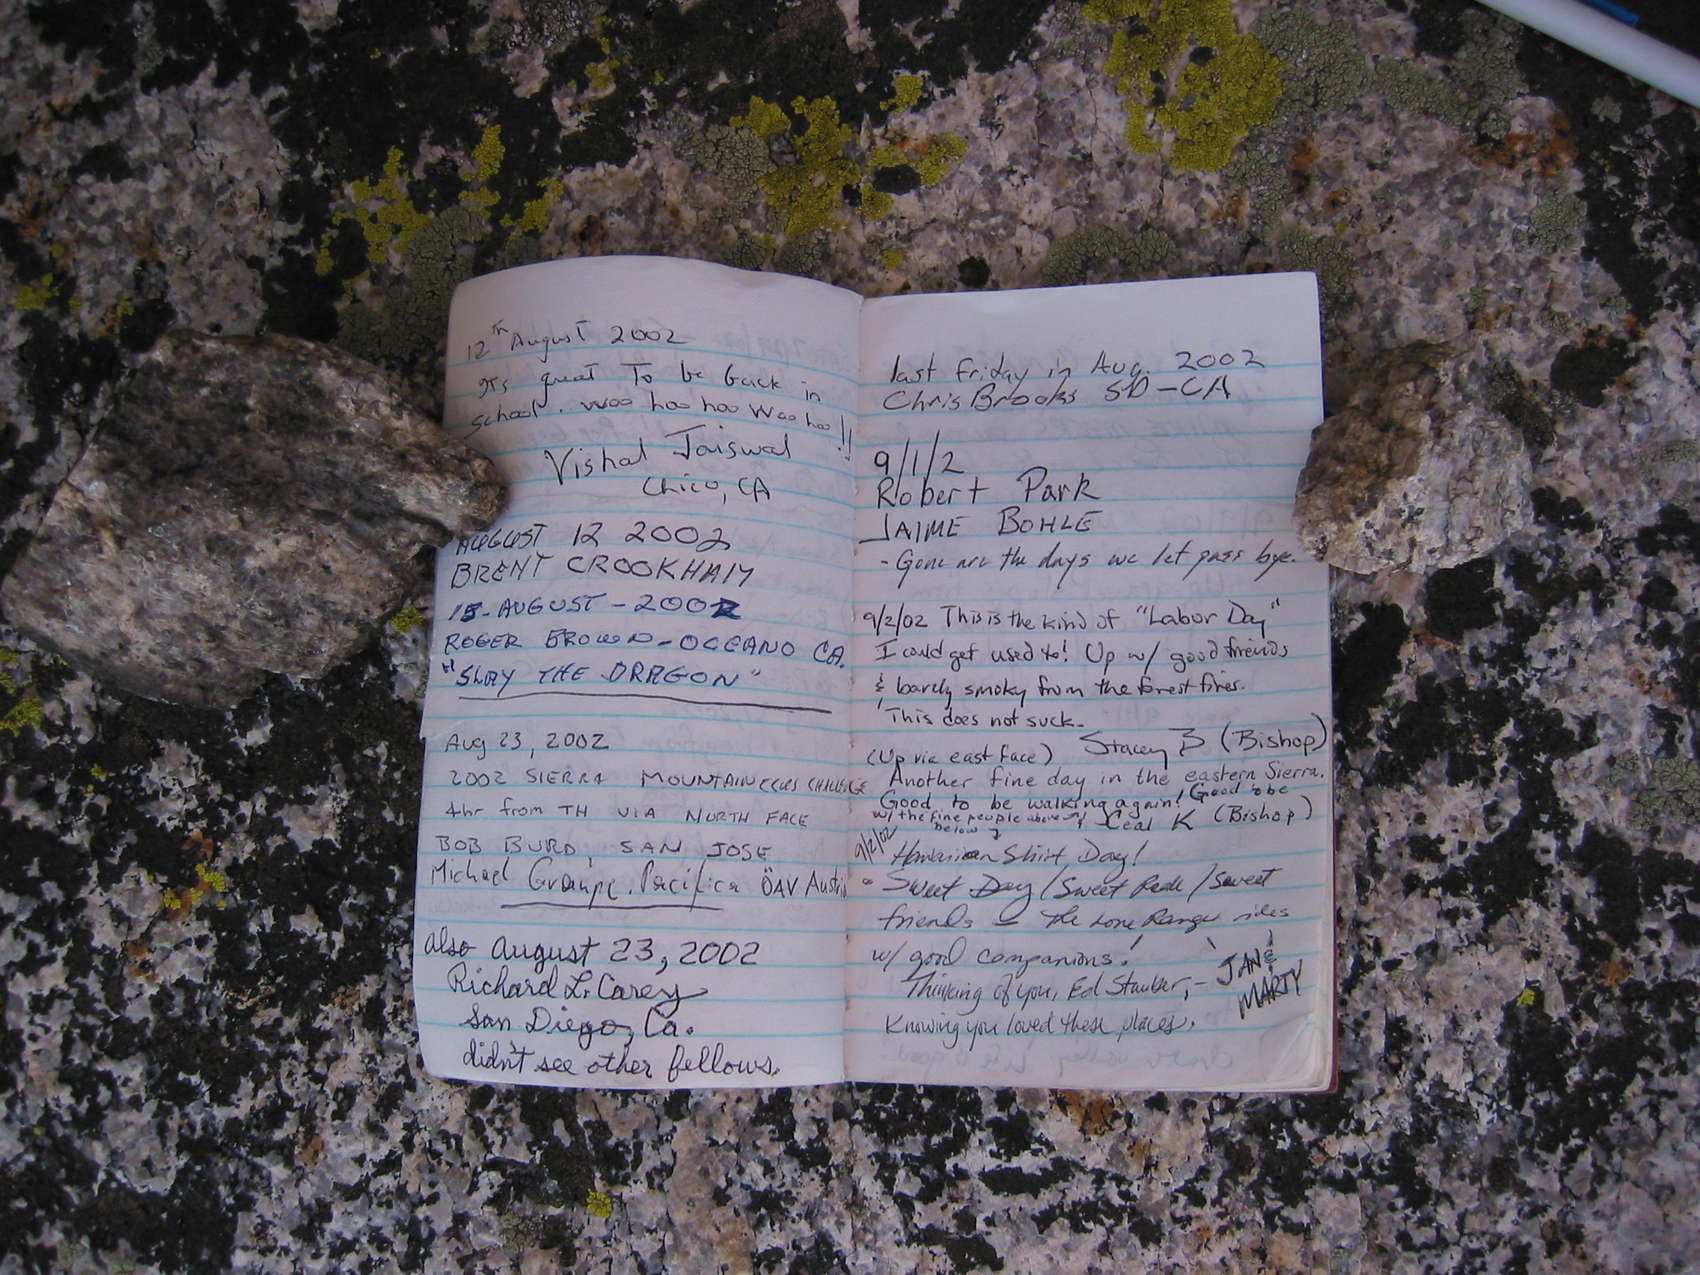 12th August 2002
Its great To be back in
school. Woo hoo hoo Woo hoo!!
Vishal Jaiswal
Chico, CA
AUGUST 12 2002
BRENT CROOKHAM
15-AUGUST-2002
ROGER BROWN-OCEANO CA.
"SLAY THE DRAGON"
Aug 23, 2002
2002 SIERRA MOUNTAINEERS CHALLENGE
4hr from TH VIA NORTH FACE
BOB BURD, SAN JOSE
Michael Graupe, Pacifica ÖAV Austria
also August 23, 2002
Richard L. Carey
San Diego, Ca.
didn't see other fellows.
last Friday in Aug. 2002
Chris Brooks SD-CA
9/1/2
Robert Park
JAIME BOHLE
- Gone are the days we let pass bye.
9/2/02 This is the kind of "Labor Day"
I could get used to! Up w/ good friends
& barely smoky from the forest fires.
This does not suck.
(Up via east face) Stacey B (Bishop)
Another fine day in the eastern Sierra.
Good to be walking again! Good to be
w/ the fine people above & below Ceal K (Bishop)
9/2/02 Hawaiian Shirt Day!
Sweet Day/Sweet Peak/Sweet
friends - the Lone Ranger rides
w/ good companions!
Thinking of you, Ed Stauber, - JAN &
MARTY
Knowing you loved these places.